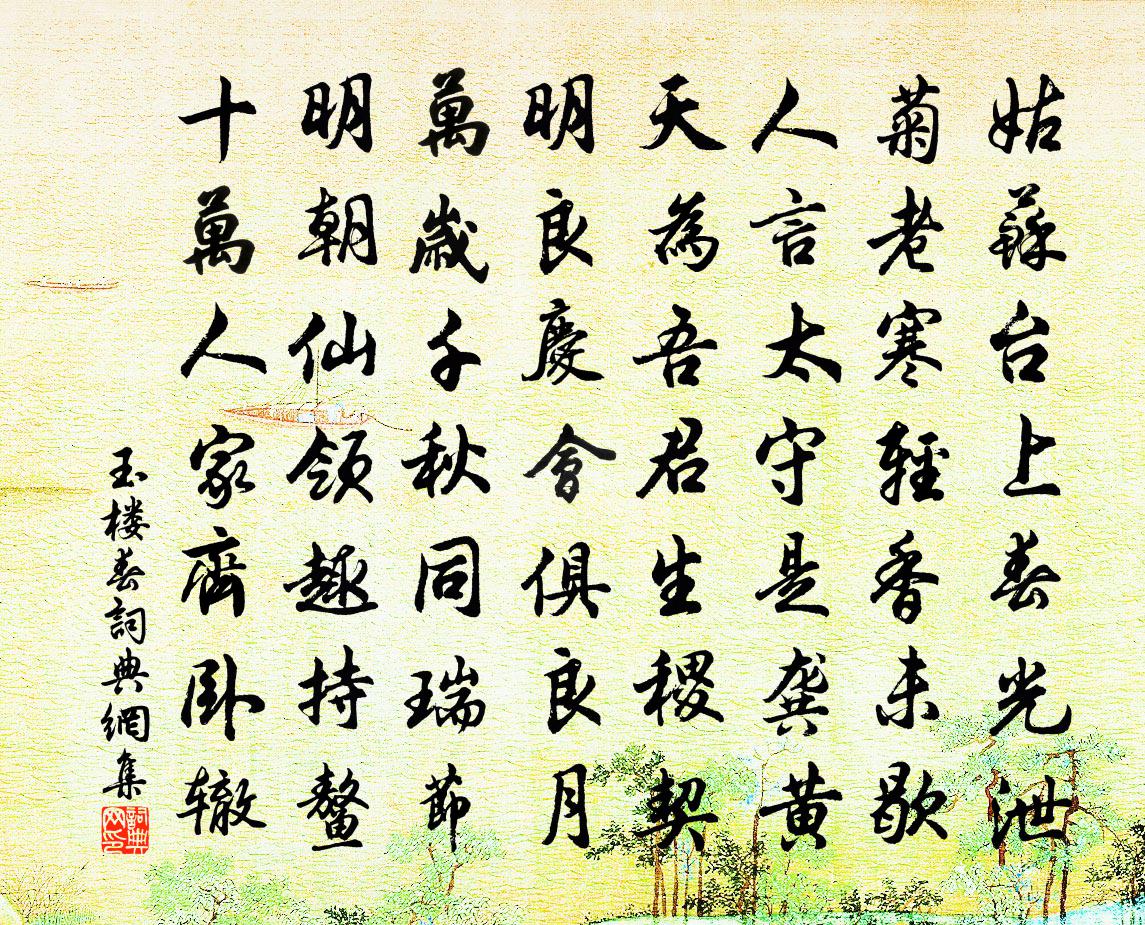 姑蘇台上春光泄
菊老寒輕香未歇
人言太守是龔黃
天為吾君生稷契
明良慶會俱良月
萬歲千秋同瑞節
明朝仙領趣持鰲
十萬人家齊卧辙
玉楼春詞典網集
詞典网印